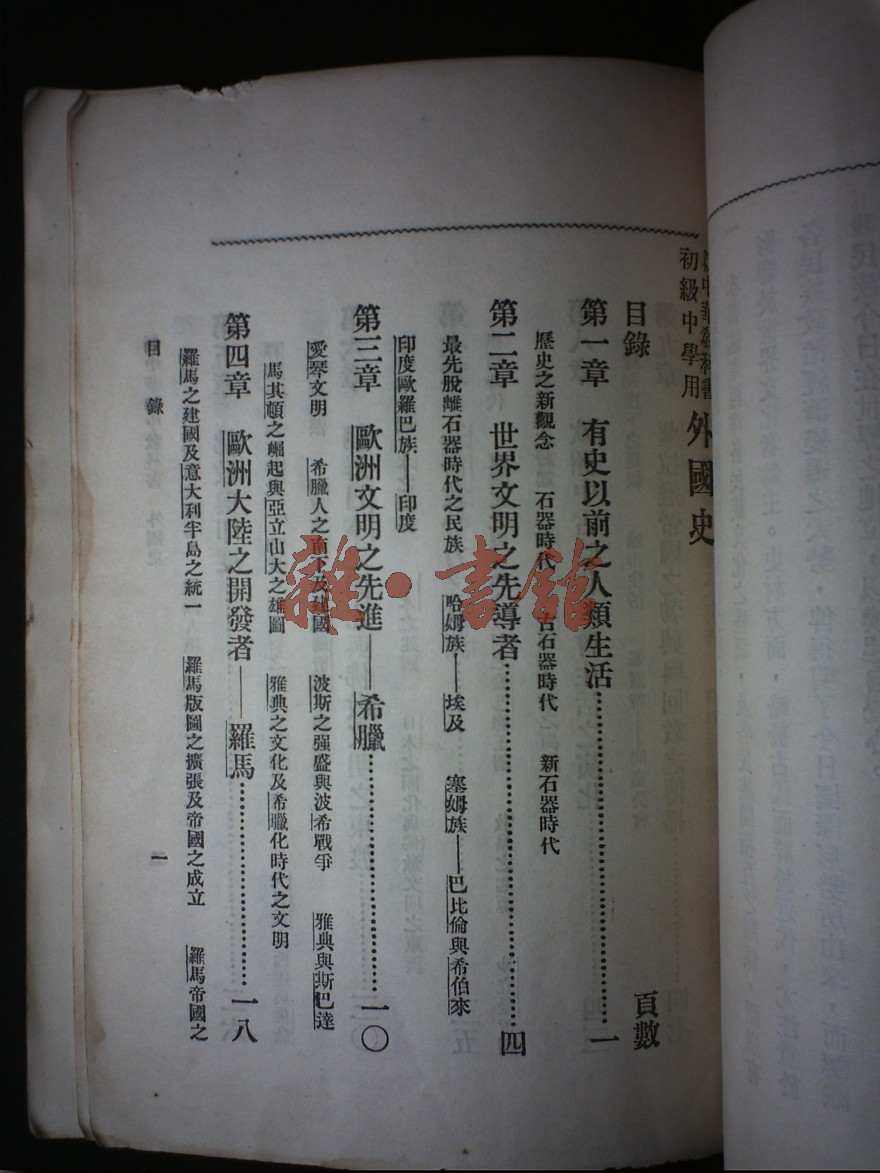 新中華教科書
初級中學用
外國史
目錄 頁數
第一章 有史以前之人類生活……一
歷史之新觀念 石器時代 古石器時代 新石器時代
第二章 世界文明之先導者……四
最先脫離石器時代之民族 哈姆族——埃及 塞姆族——巴比倫與希伯來
印度歐羅巴族——印度
第三章 歐洲文明之先進——希臘……一〇
愛琴文明 希臘人之南下及建國 波斯之强盛與波希戰爭 雅典與斯巴達
馬其頓之崛起與亞立山大之雄圖 雅典之文化及希臘化時代之文明
第四章 歐洲大陸之開發者——羅馬……一八
羅馬之建國及意大利半島之統一 羅馬版圖之擴張及帝國之成立 羅馬帝國之
目錄 一
雜·書館